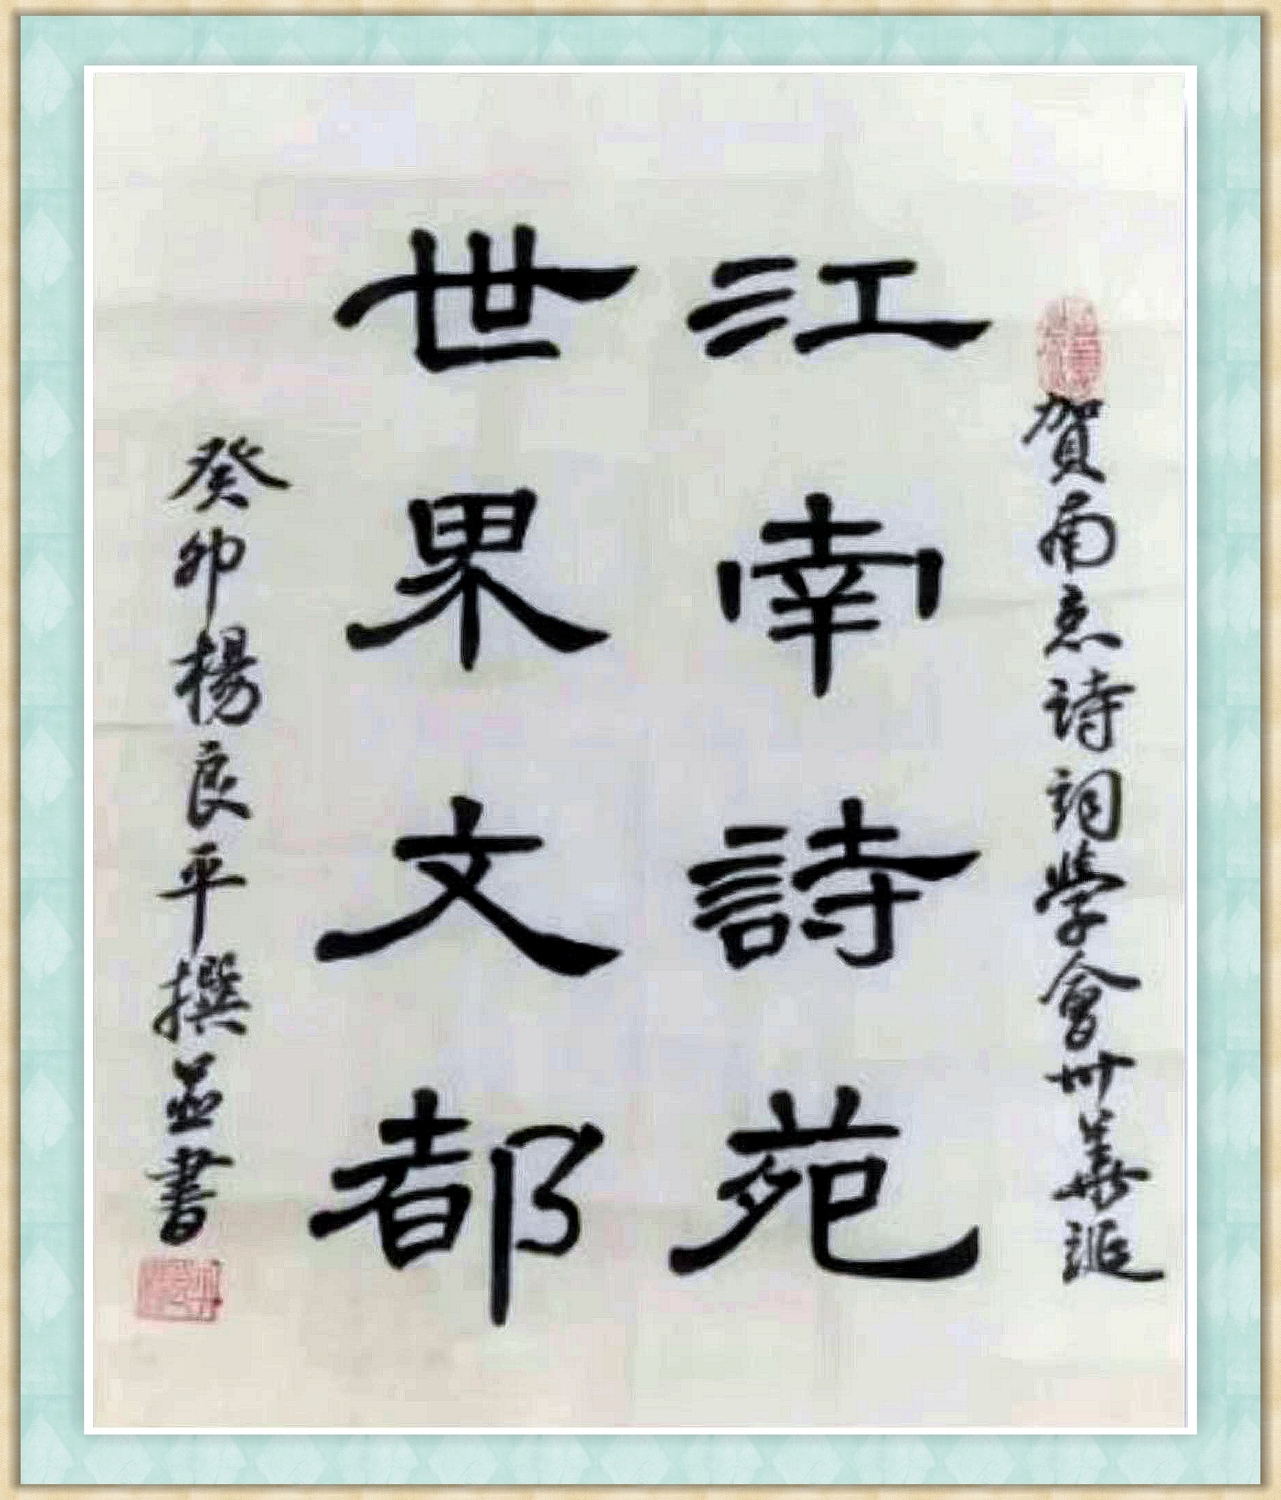 賀南京詩詞學會卅華誕
江南詩苑
世界文都
癸卯楊良平撰並書